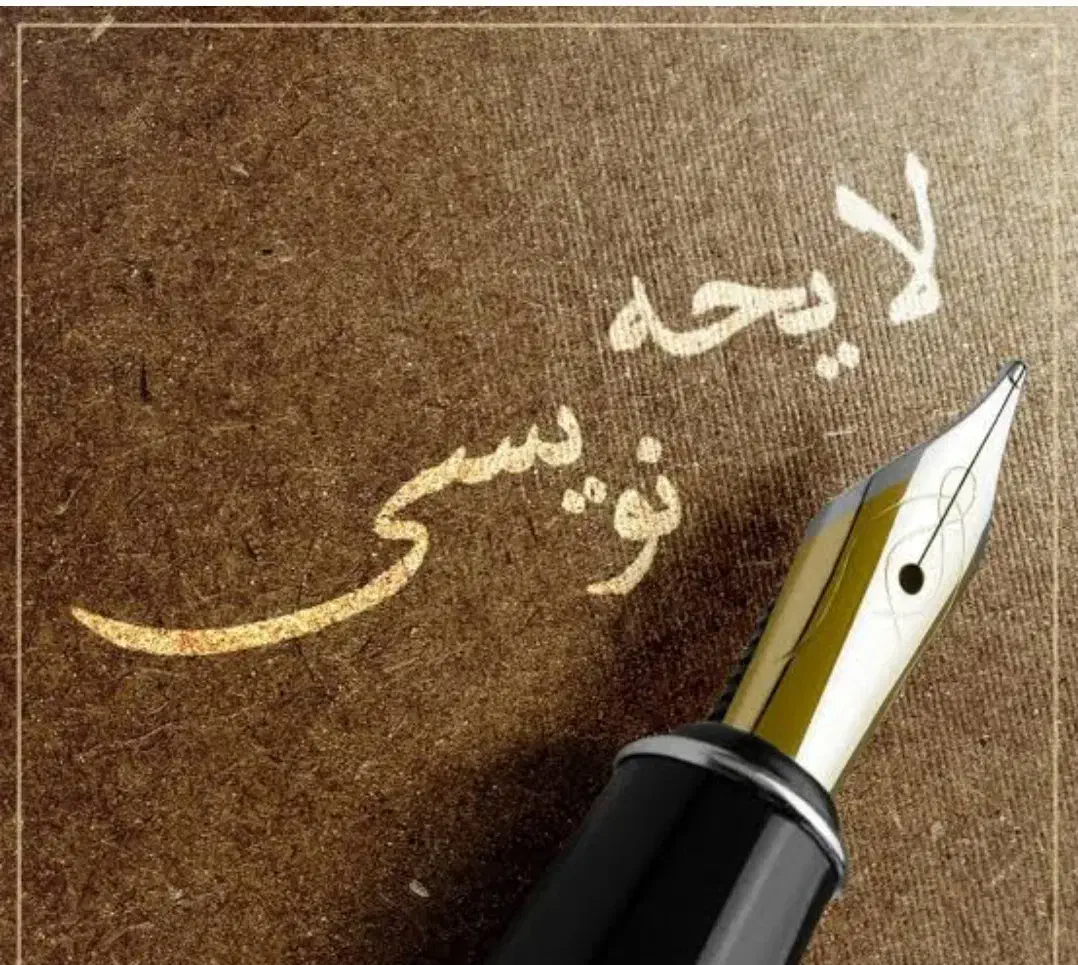 لایحه
نویسی